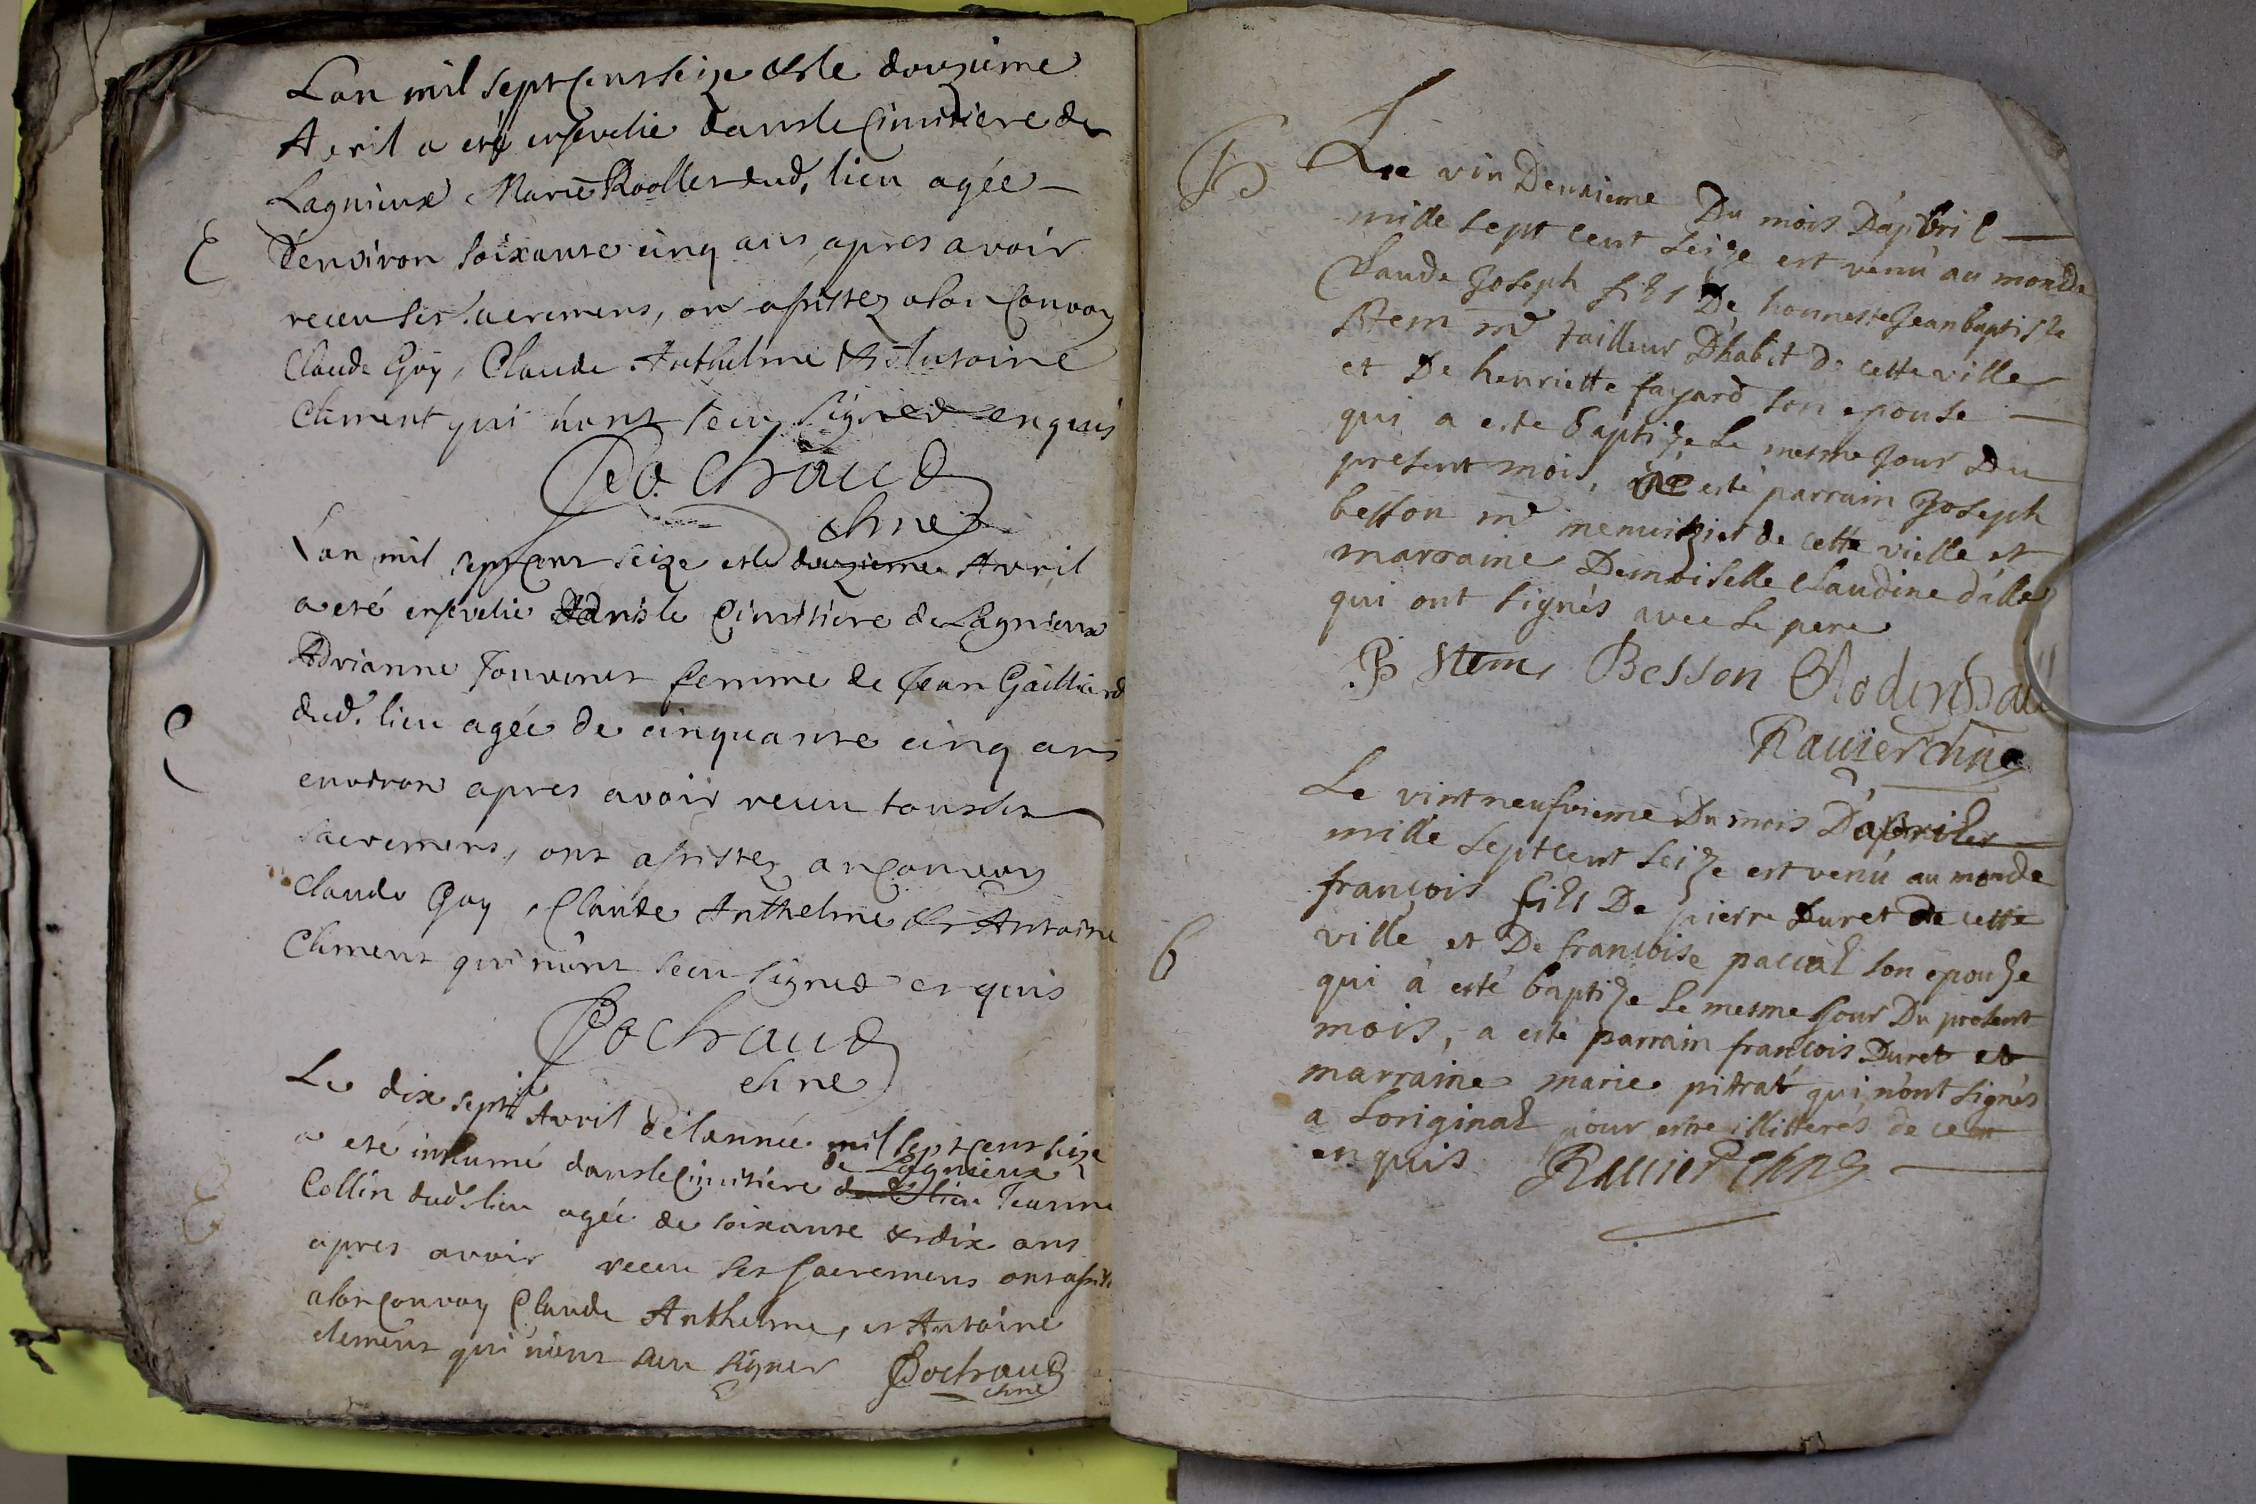 Lan mil sept cent seize & le douzieme
Avril a eté ensevelie dans le Cimitiere de
Lagnieux Marie Rollet dud. lieu agée
d'environ soixante cinq ans, apres avoir
receu ses sacremens, ont assistez a son Convoy
Claude Guy, Claude Anthelme & Antoine
Clement qui n'ont sceu signer enquis
Pochaud
chne
Lan mil sept cent seize et le douzieme Avril
a eté ensevelie dans le Cimitiere de Lagnieux
Adrianne Jouvenet femme de Jean Gailliard
dud. lieu agée de cinquante cinq ans
environ apres avoir receu tous les
sacremens, ont assistez a son Convoy
Claude Guy, Claude Anthelme & Antoine
Clement qui n'ont sceu signer enquis
Pochaud
chne
Le dix sept Avril de lannée mil sept cent seize
a eté inhumé dans le Cimitiere dud. lieu de Lagnieux Jeanne
Collin dud. lieu agée de soixante & dix ans
apres avoir receu ses sacremens ont assisté
a son Convoy Claude Anthelme, et Antoine
clement qui n'ont sceu signer Pochaud
chne
B
Le vin Deuxieme Du mois D'apvril
mille sept cent seize est venu au monde
Claude Joseph fils De honneste Jean baptiste
Stem me tailleur D'habit de cette ville
et De henriette fayard son epouse
qui a esté baptizé Le mesme Jour Du
present mois, a esté parrain Joseph
besson me menuizier de cette vielle et
marraine Demoiselle Claudine d'alle
qui ont signés avec Le pere
Stem Besson
Ravier chne
Le vint neufvieme Du mois D'apvril
mille sept cent seize est venu au monde
françois fils De pierre Duret de cette
ville et De françoise pascal son epouze
qui a esté baptizé Le mesme Jour Du present
mois, a esté parrain françois Duret et
marraine marie pitrat qui n'ont signés
a Loriginal pour estre illitterés de ce
enquis Ravier chne
b